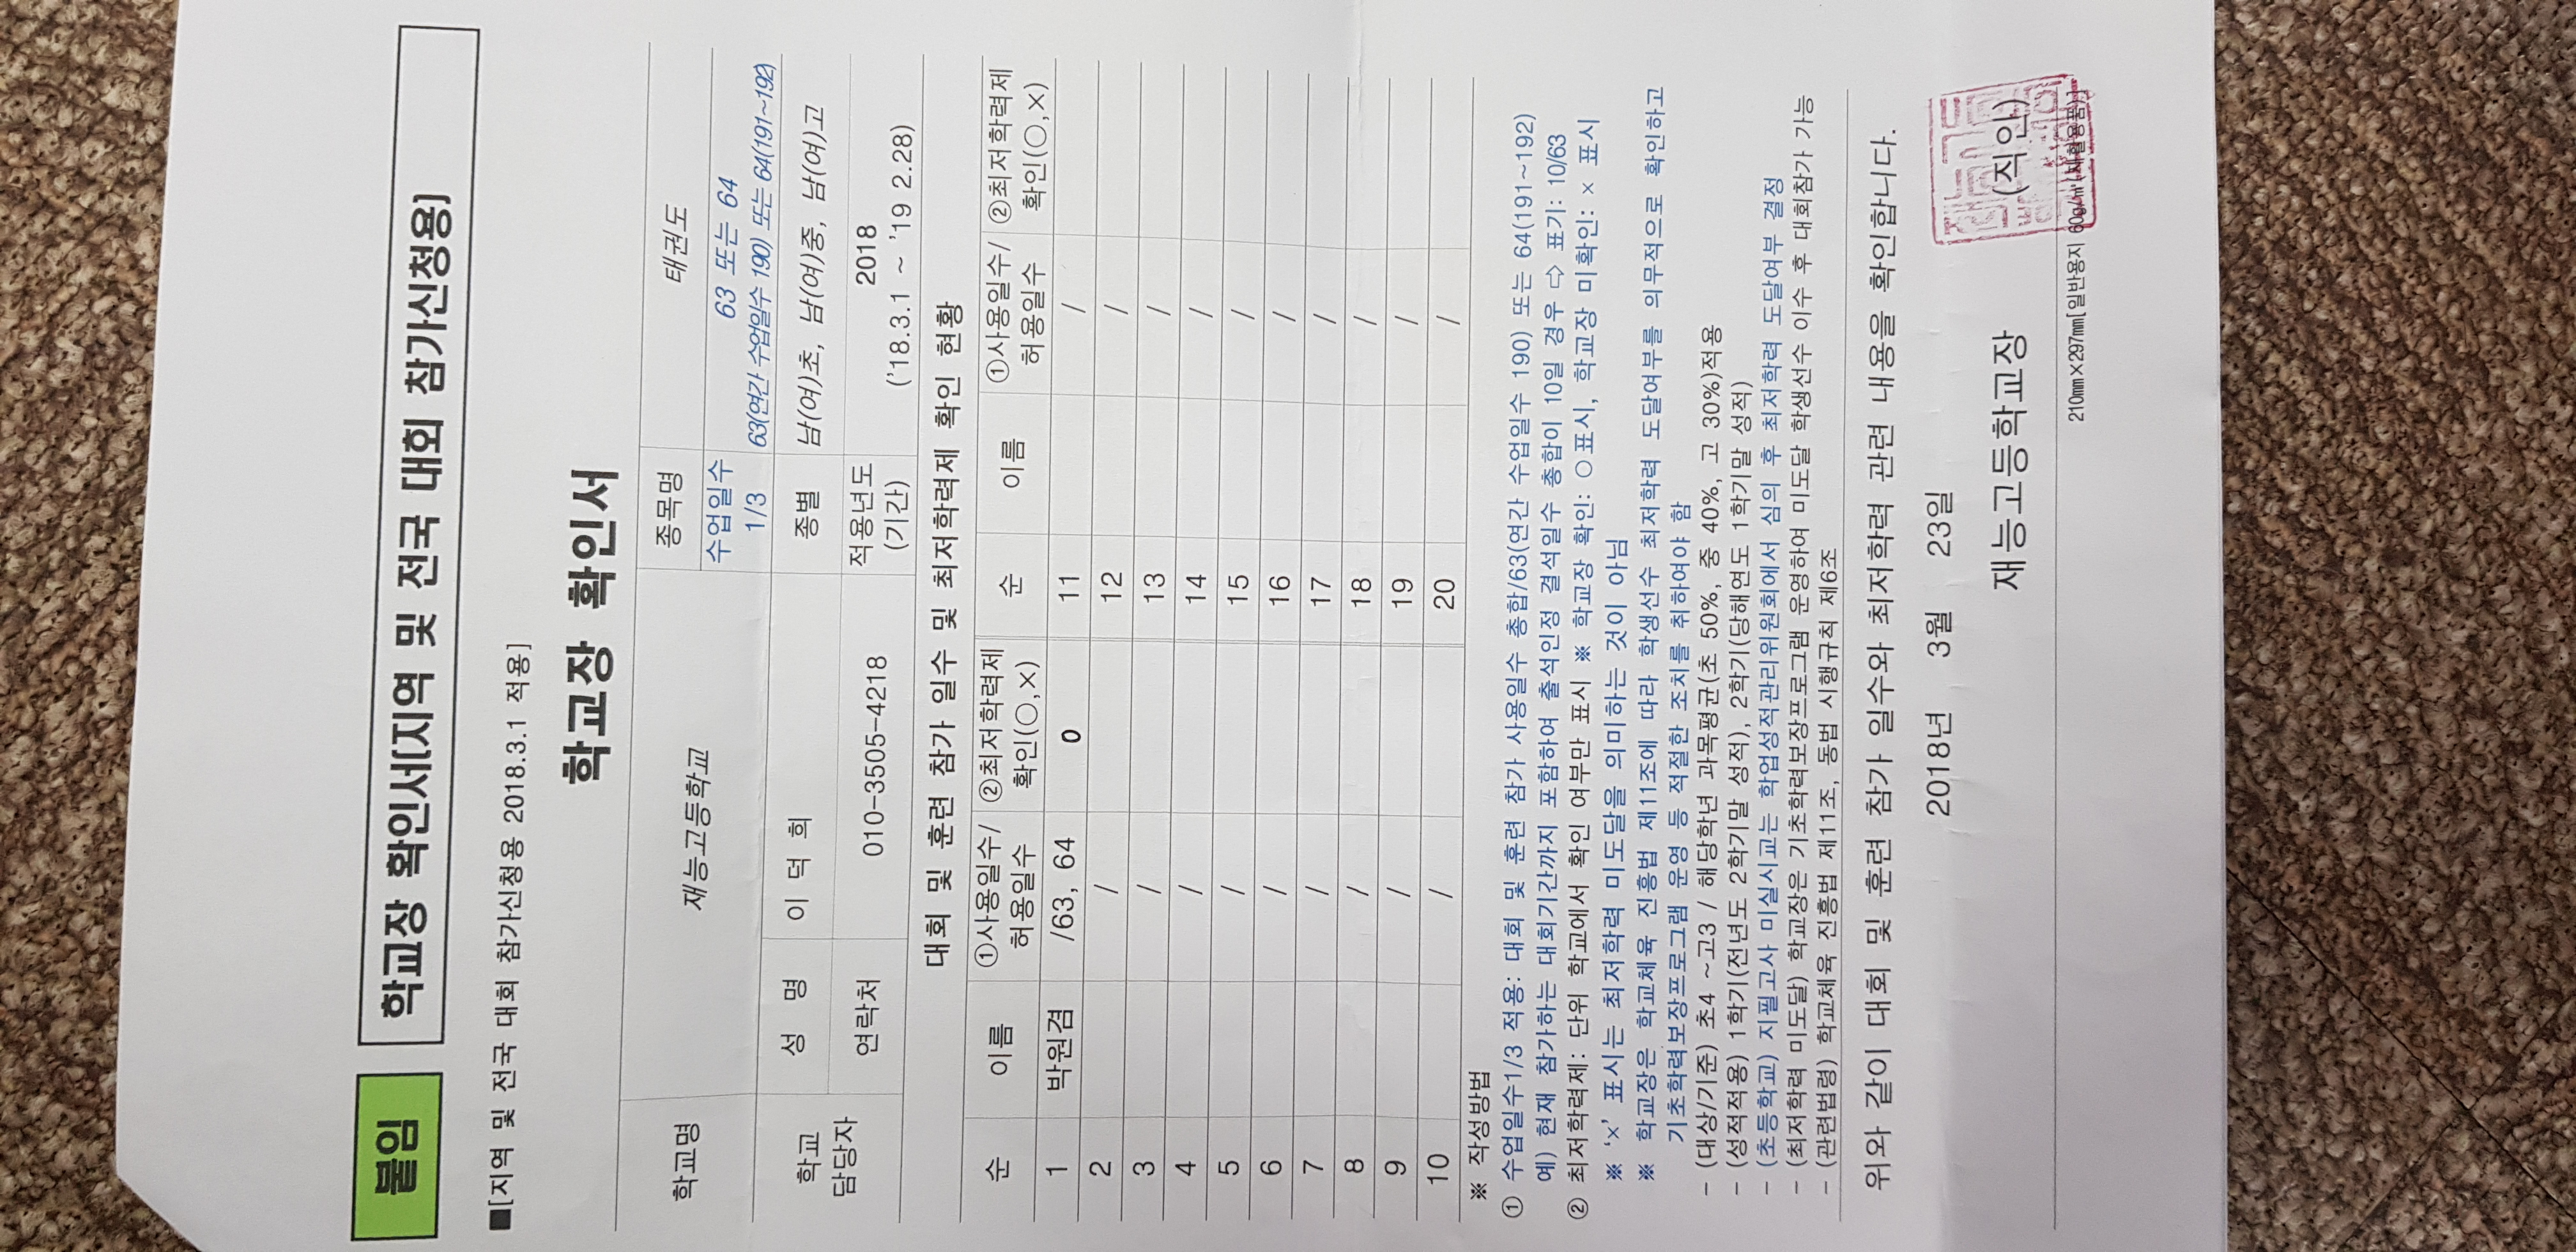 붙임 학교장 확인서[지역 및 전국 대회 참가신청용]
■[지역 및 전국 대회 참가신청용 2018.3.1 적용]
학교장 확인서
학교명 재능고등학교 종목명 태권도
수업일수 1/3 63 또는 64
63(연간 수업일수 190) 또는 64(191~192)
학교 담당자 성 명 이 덕 희 종별 남(여)초, 남(여)중, 남(여)고
연락처 010-3505-4218 적용년도 (기간) 2018
('18.3.1 ~ '19 2.28)
대회 및 훈련 참가 일수 및 최저학력제 확인 현황
순 이름 ①사용일수/허용일수 ②최저학력제 확인(○,×) 순 이름 ①사용일수/허용일수 ②최저학력제 확인(○,×)
1 박원겸 /63, 64 0 11 /
2 / 12 /
3 / 13 /
4 / 14 /
5 / 15 /
6 / 16 /
7 / 17 /
8 / 18 /
9 / 19 /
10 / 20 /
※ 작성방법
① 수업일수1/3 적용: 대회 및 훈련 참가 사용일수 총합/63(연간 수업일수 190) 또는 64(191~192)
예) 현재 참가하는 대회기간까지 포함하여 출석인정 결석일수 총합이 10일 경우 ⇨ 표기: 10/63
② 최저학력제: 단위 학교에서 확인 여부만 표시 ※ 학교장 확인: ○표시, 학교장 미확인: × 표시
※ '×' 표시는 최저학력 미도달을 의미하는 것이 아님
※ 학교장은 학교체육 진흥법 제11조에 따라 학생선수 최저학력 도달여부를 의무적으로 확인하고
기초학력보장프로그램 운영 등 적절한 조치를 취하여야 함
- (대상/기준) 초4 ~고3 / 해당학년 과목평균(초 50%, 중 40%, 고 30%)적용
- (성적적용) 1학기(전년도 2학기말 성적), 2학기(당해연도 1학기말 성적)
- (초등학교) 지필고사 미실시교는 학업성적관리위원회에서 심의 후 최저학력 도달여부 결정
- (최저학력 미도달) 학교장은 기초학력보장프로그램 운영하여 미도달 학생선수 이수 후 대회참가 가능
- (관련법령) 학교체육 진흥법 제11조, 동법 시행규칙 제6조
위와 같이 대회 및 훈련 참가 일수와 최저학력 관련 내용을 확인합니다.
2018년 3월 23일
재능고등학교장 (직인)
210㎜×297㎜[일반용지 60g/㎡(재활용품)]